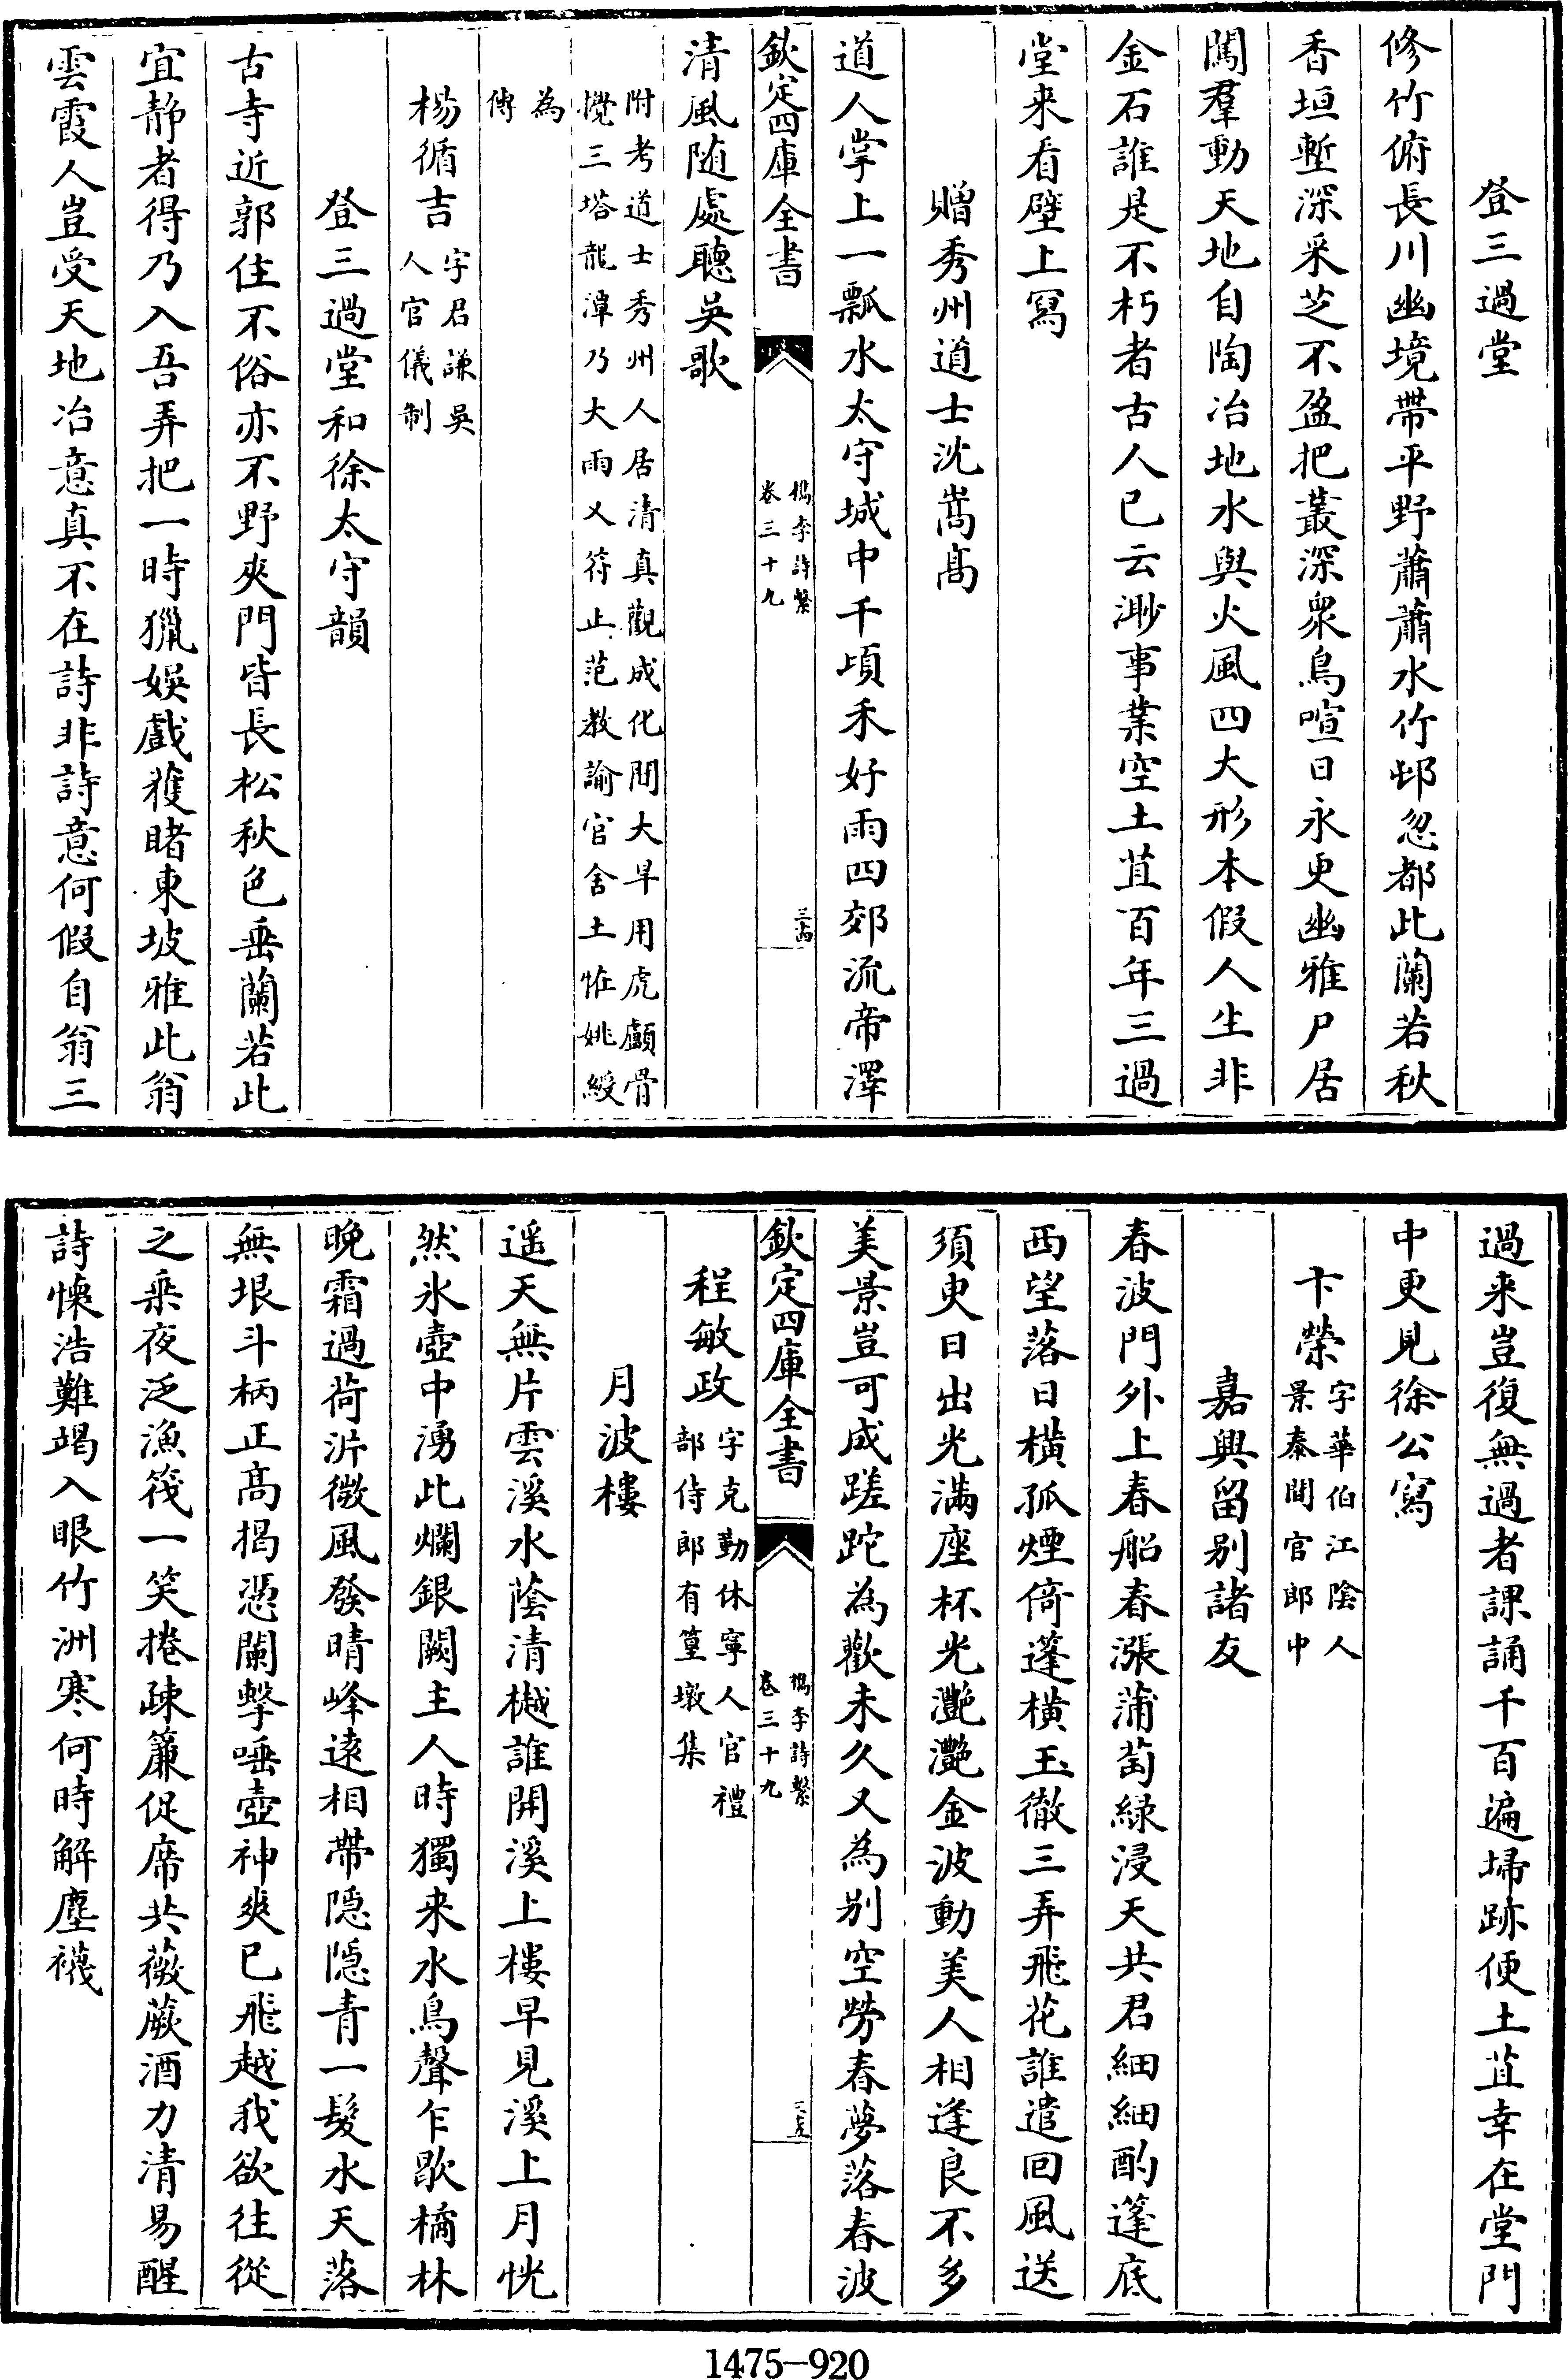 登三過堂
修竹俯長川幽境帶平野蕭蕭水竹邨忽都此蘭若秋
香垣塹深采芝不盈把叢深衆鳥喧日永更幽雅尸居
闖羣動天地自陶冶地水與火風四大形本假人生非
金石誰是不朽者古人已云渺事業空土苴百年三過
堂来看壁上寫
贈秀州道士沈嵩髙
道人掌上一瓢水太守城中千頃禾好雨四郊流帝澤
欽定四庫全書
檇李詩繫
卷三十九
三十四
清風随處聽吳歌
附考道士秀州人居清真觀成化間大旱用虎顱骨
攪三塔龍潭乃大雨又符止范教諭官舍土恠姚綬
為
傳
楊循吉
字君謙吳
人官儀制
登三過堂和徐太守韻
古寺近郭住不俗亦不野夾門皆長松秋色垂蘭若此
宜静者得乃入吾弄把一時獵娛戲獲睹東坡雅此翁
雲霞人豈受天地冶意真不在詩非詩意何假自翁三
過来豈復無過者課誦千百遍埽跡便土苴幸在堂門
中更見徐公寫
卞榮
字華伯江陰人
景泰間官郎中
嘉興留别諸友
春波門外上春船春漲蒲萄緑浸天共君細細酌蓬底
西望落日横孤煙倚蓬横玉徹三弄飛花誰遣回風送
須臾日出光滿座杯光灧灧金波動美人相逢良不多
美景豈可成蹉跎為歡未久又為别空勞春夢落春波
欽定四庫全書
檇李詩繫
卷三十九
三十五
程敏政
字克勤休寧人官禮
部侍郎有篁墩集
月波樓
遥天無片雲溪水蔭清樾誰開溪上樓早見溪上月恍
然氷壺中湧此爛銀闕主人時獨来水鳥聲乍歇橘林
晚霜過荷沜微風發晴峰遠相帶隠隠青一髮水天落
無垠斗柄正髙揭憑闌擊唾壺神爽已飛越我欲往從
之乗夜泛漁筏一笑捲疎簾促席共薇蕨酒力清易醒
詩懐浩難竭入眼竹洲寒何時解塵襪
1475-920